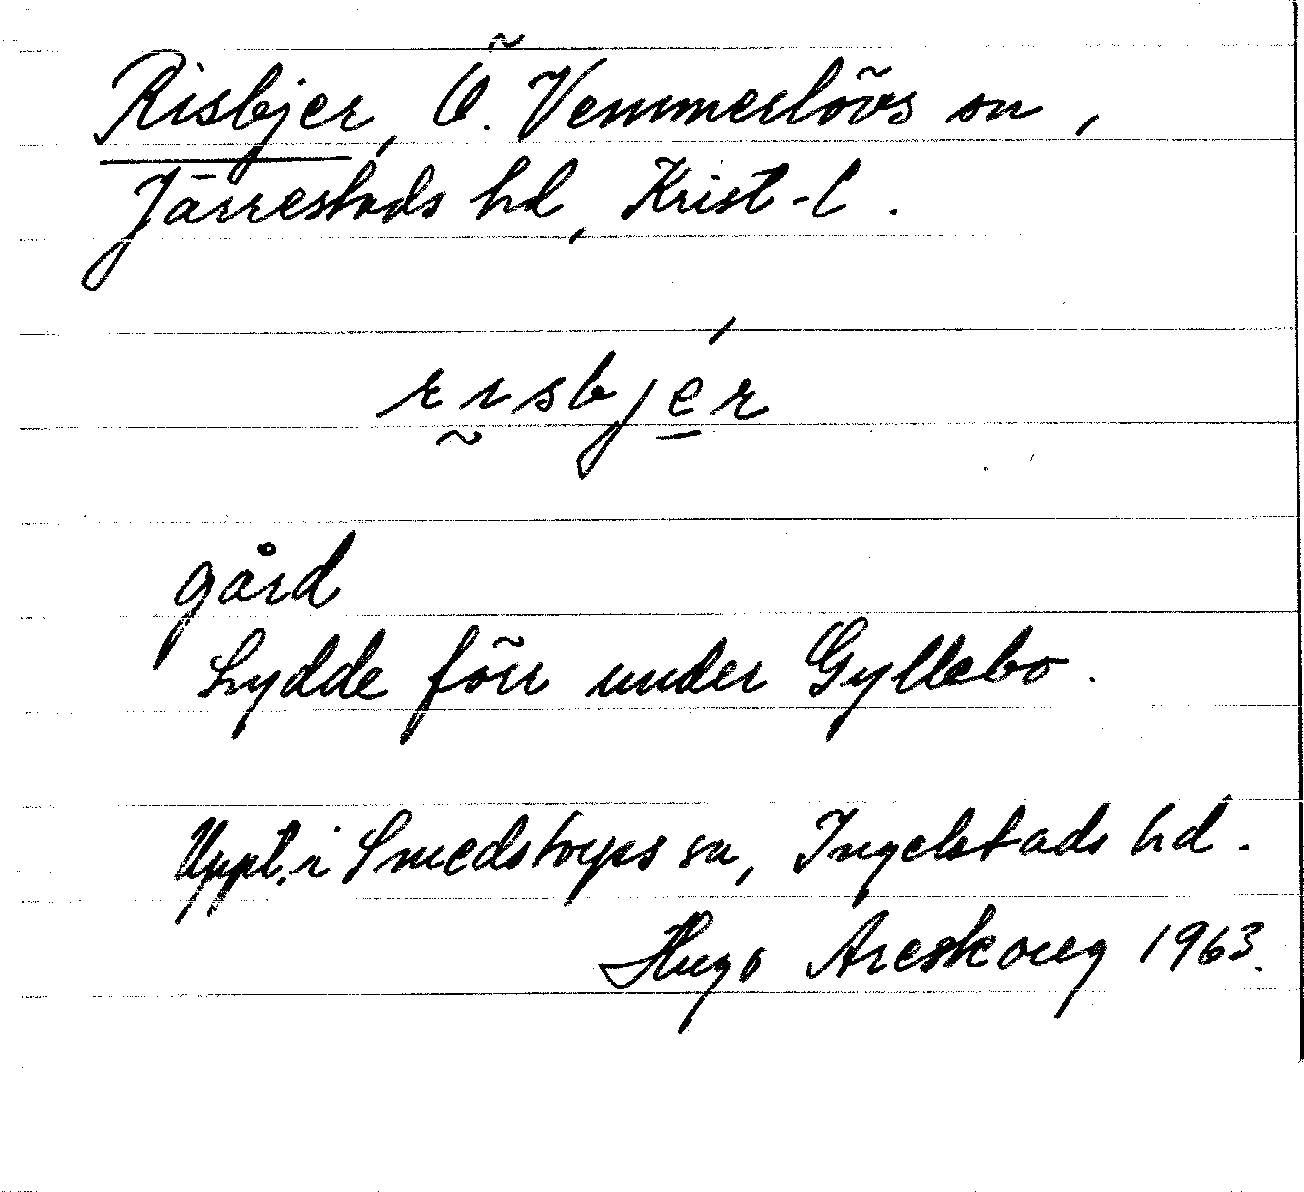 Risbjer, Ö. Vemmerlövs sn,
Järrestads hd, Krist-l.
rɩ̰sbjé̠r
gård
Lydde förr under Gyllebo.
Uppt. i Smedstorps sn, Ingelstads hd.
Hugo Areskoug 1963.